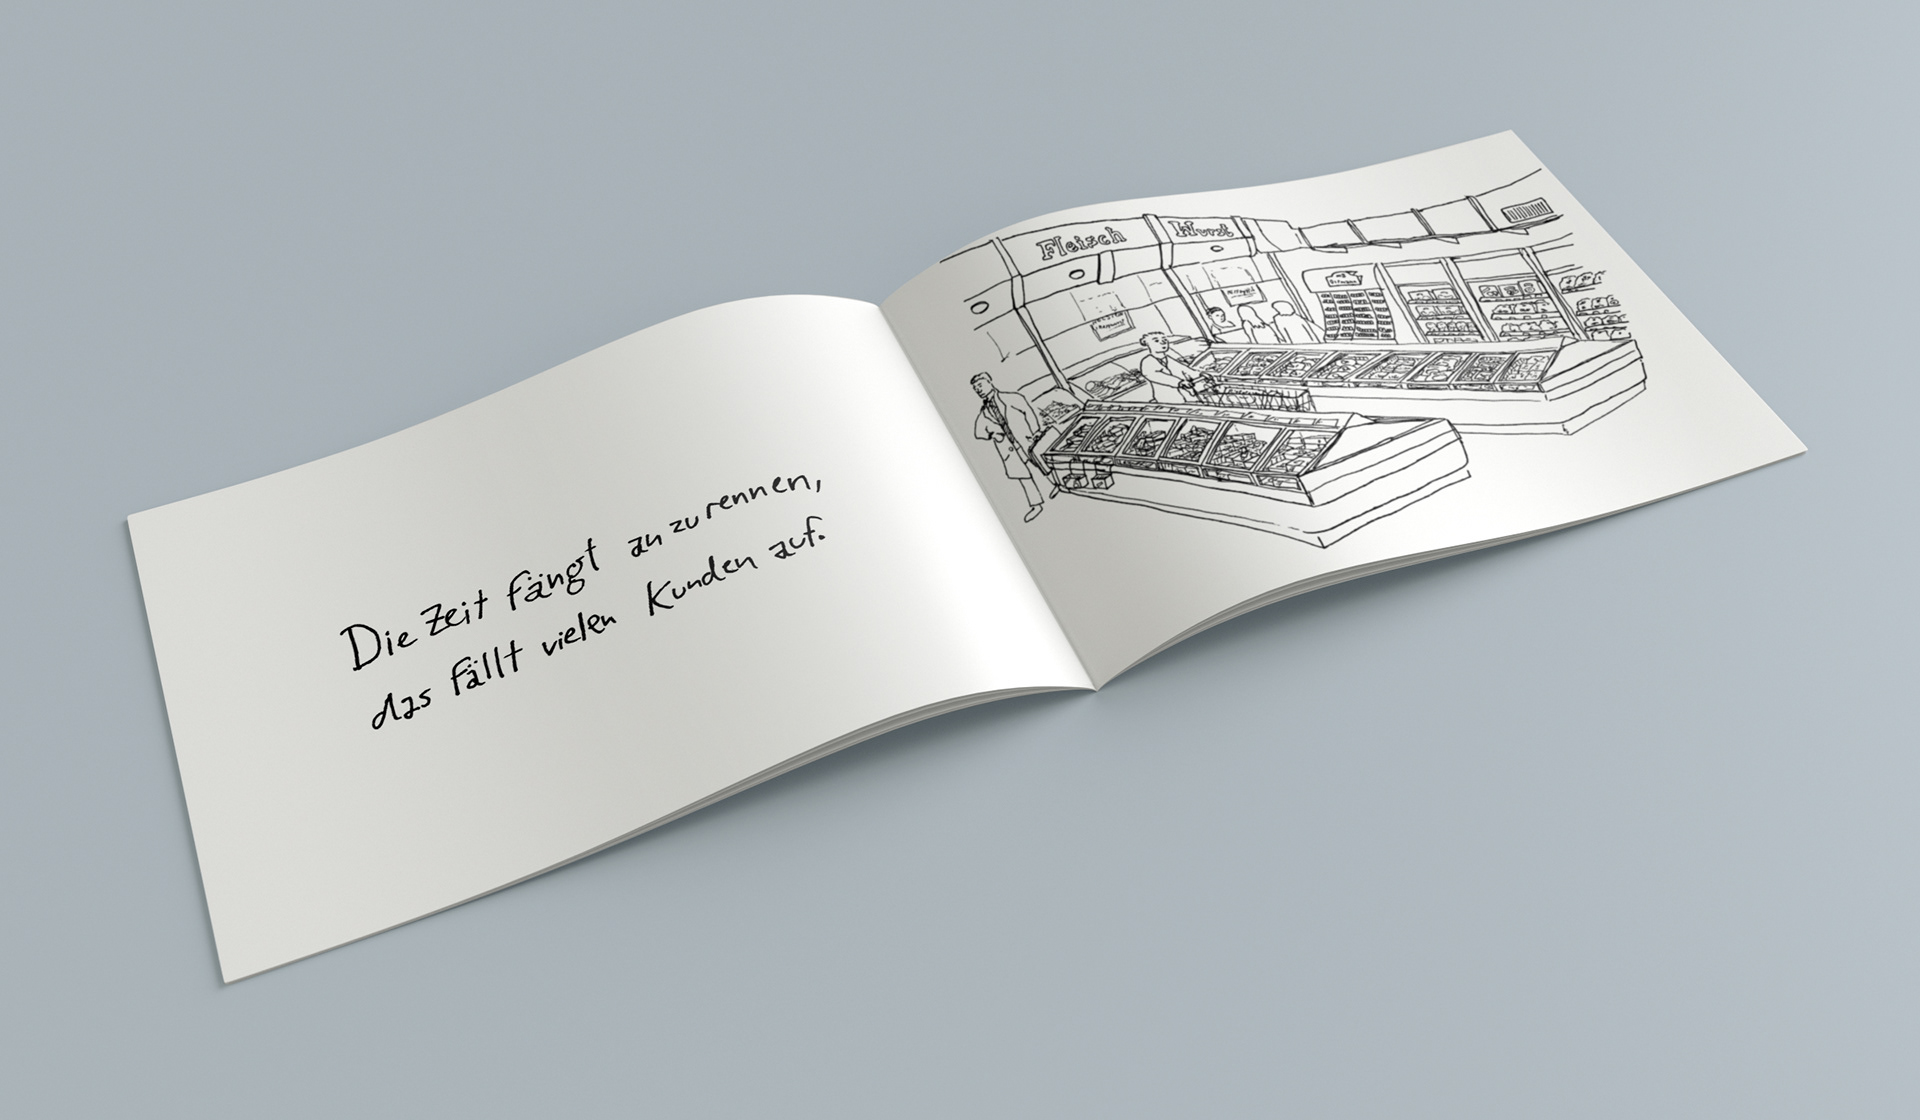 Die Zeit fängt an zu rennen,
das fällt vielen Kunden auf.
Fleisch
Wurst